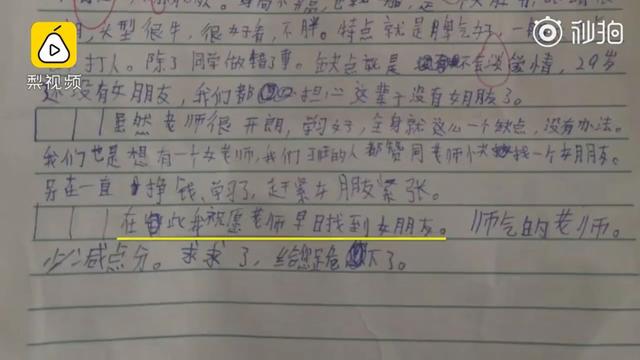 梨视频
秒拍
发型很牛,很好看,不胖。特点就是脾气好,一般
打人。除了同学做错了事。缺点就是不会谈爱情,29岁
还没有女朋友,我们都担心这辈子没有女朋友了。
虽然老师很开朗,学习好,全身就这么一个缺点,没有办法。
我们也是想有一个女老师,我们班的人都赞同老师快找一个女朋友。
别在一直挣钱、学习了,赶紧女朋友紧张。
在此我祝愿老师早日找到女朋友。 师气的老师。
少减点分。求求了,给您跪下了。